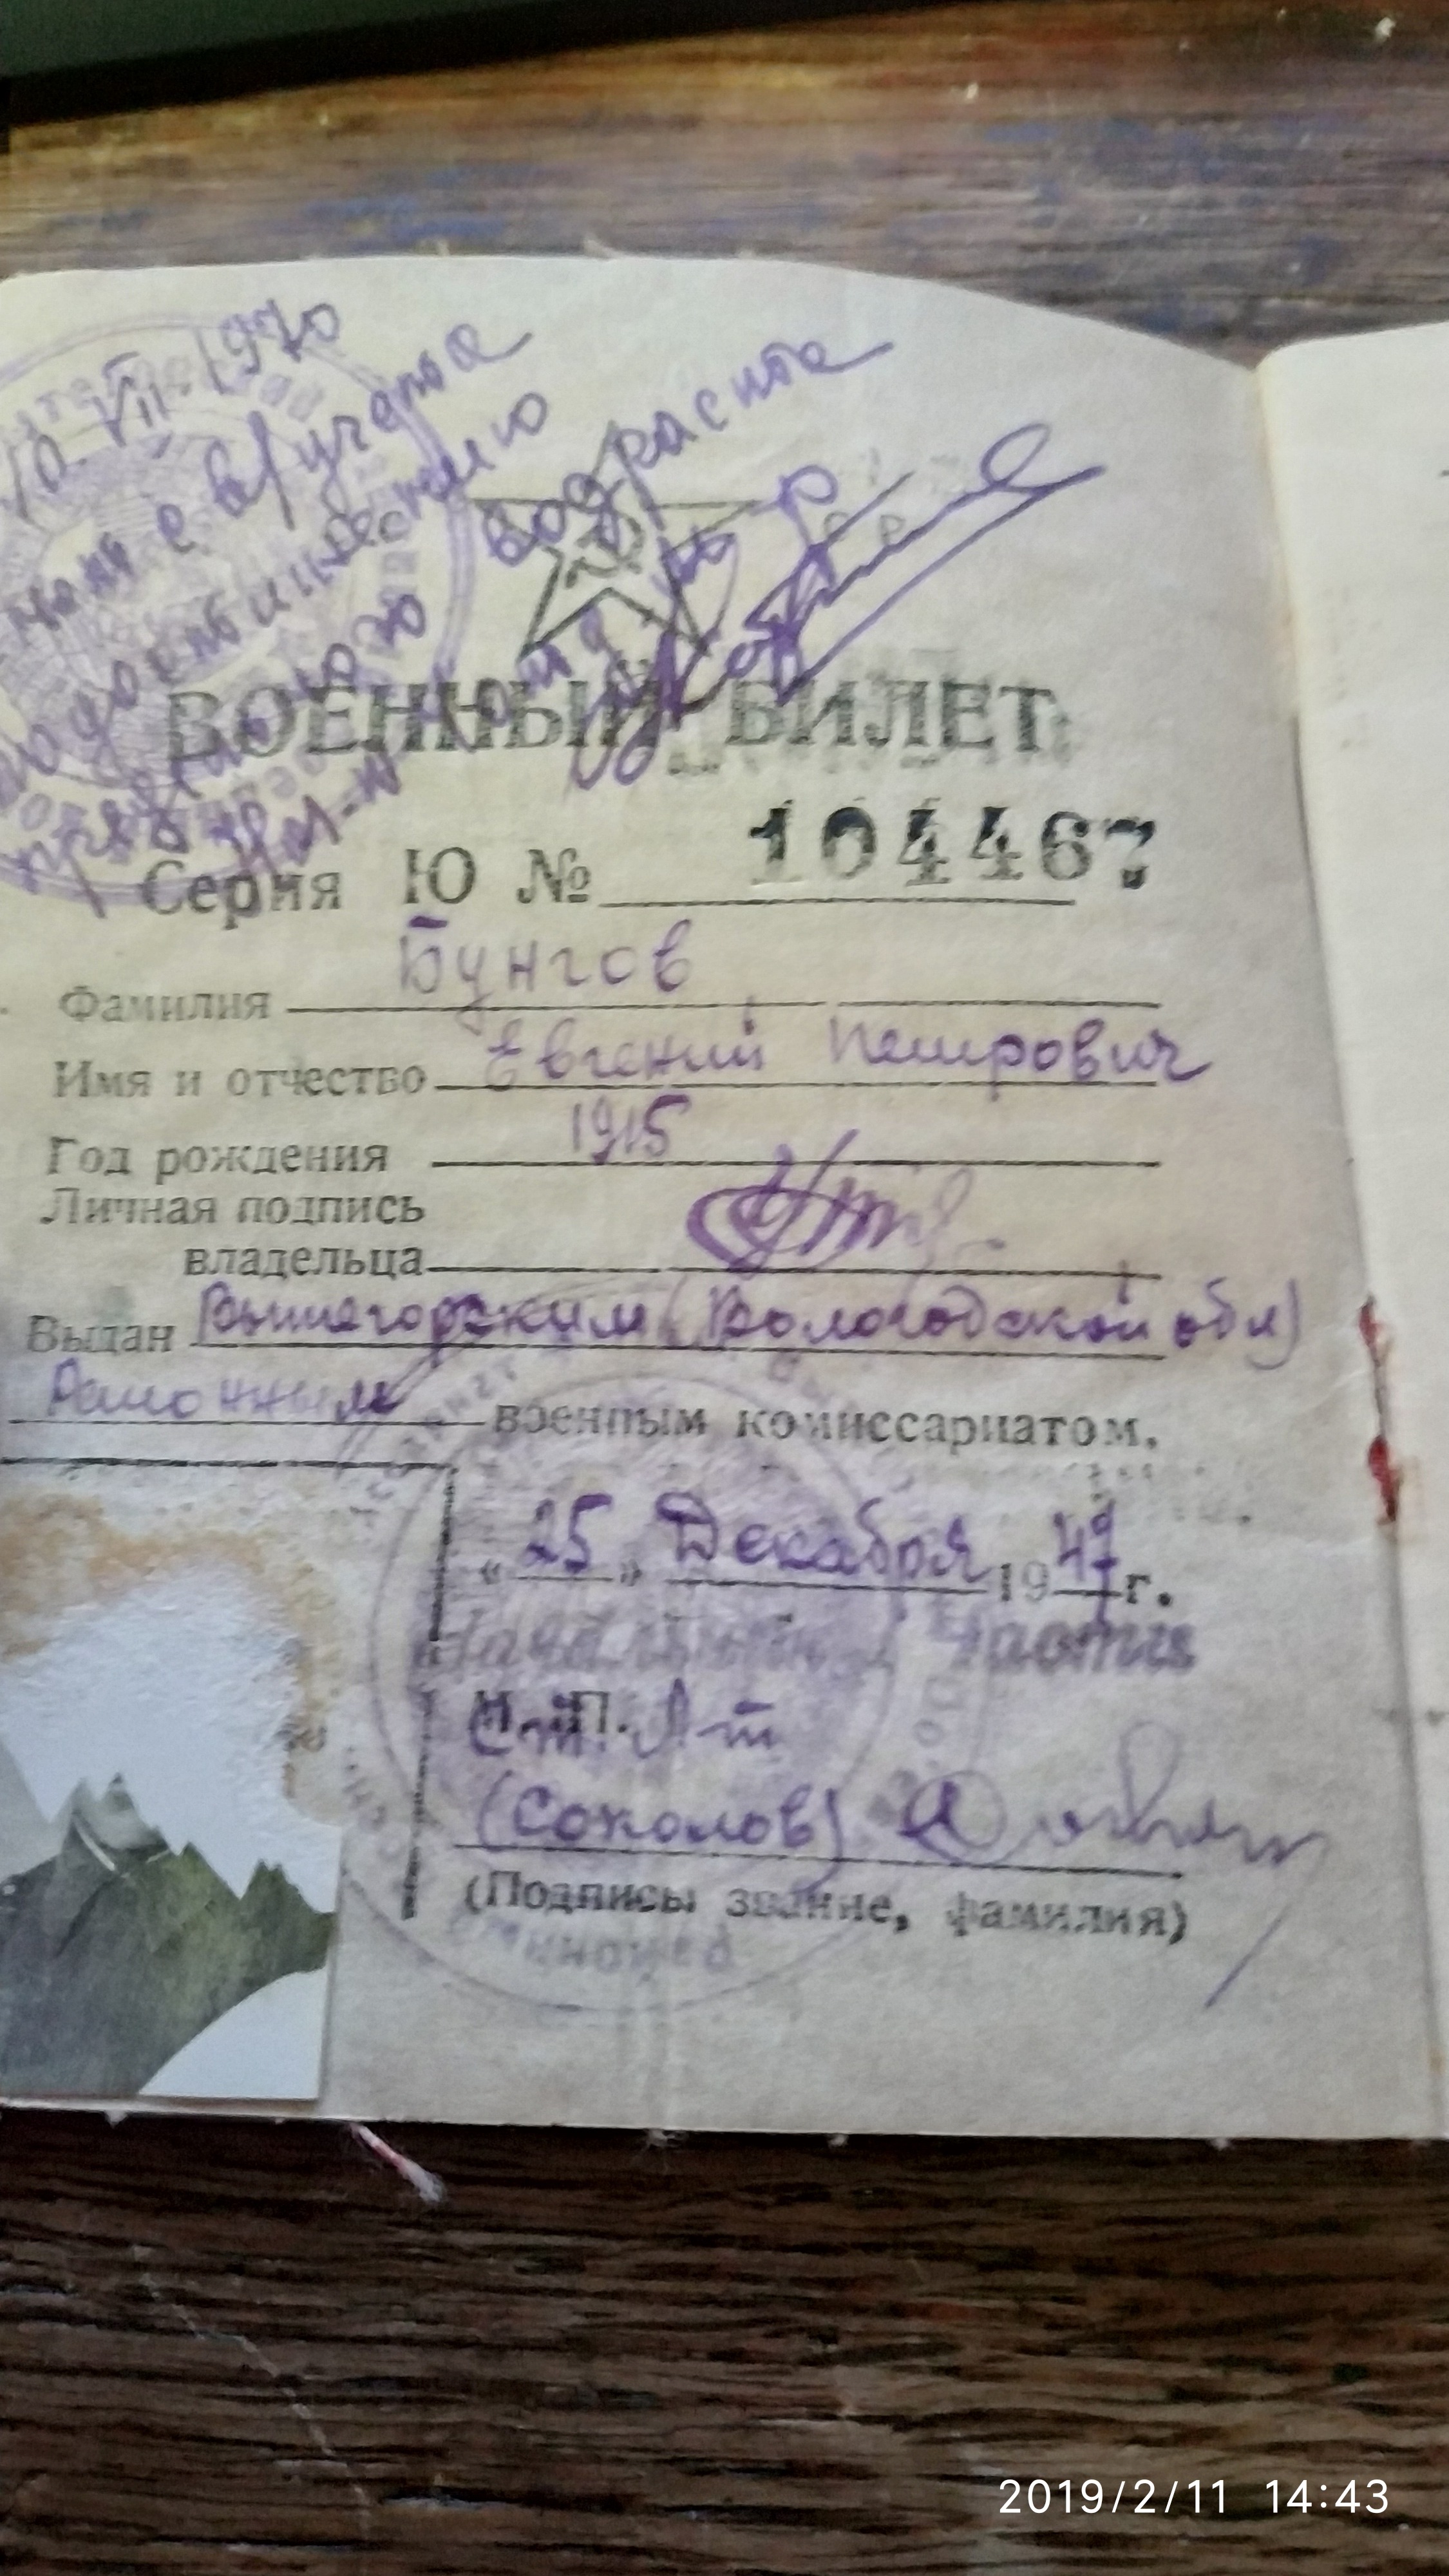 10 VII 1970
с в/учета
по достижению
возраста
ВОЕННЫЙ БИЛЕТ
Серия Ю № 104467
Фамилия Бунгов
Имя и отчество Евгений Петрович
Год рождения 1915
Личная подпись
владельца
Выдан Вытегорским (Вологодской обл)
Районным военным комиссариатом.
«25» Декабря 1947 г.
Начальник части
М. П.
Ст. Л-т
(Соколов)
(Подписы звание, фамилия)
2019/2/11 14:43